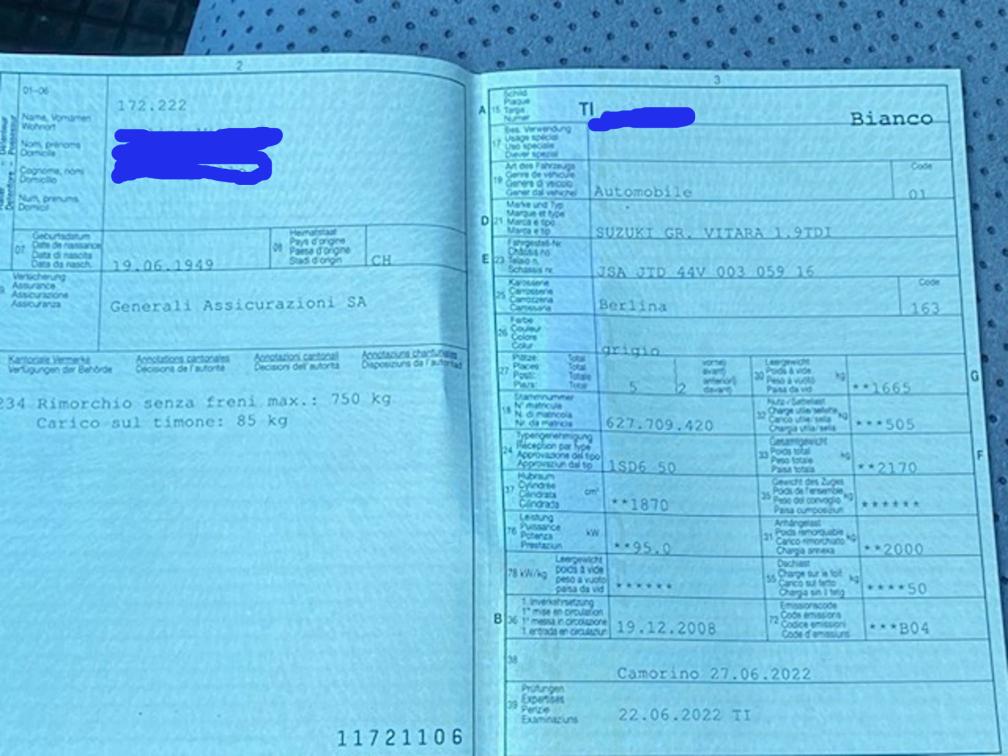 2
01-06
172.222
Name, Vornamen
Wohnort
Nom, prénoms
Domicile
Cognome, nomi
Domicilio
Num, prenums
Domicil
07
Geburtsdatum
Date de naissance
Data di nascita
Data da nasch.
19.06.1949
08
Heimatstaat
Pays d'origine
Paese d'origine
Stadi d'origin
CH
Versicherung
Assurance
Assicurazione
Assicuranza
Generali Assicurazioni SA
Kantonale Vermerke
Verfügungen der Behörde
Annotations cantonales
Décisions de l'autorité
Annotazioni cantonali
Decisioni dell'autorità
Annotaziuns chantunalas
Disposiziuns da l'autoritad
234 Rimorchio senza freni max.: 750 kg
Carico sul timone: 85 kg
11721106
3
A 15
Schild
Plaque
Targa
Numer
TI
Bianco
17
Bes. Verwendung
Usage spécial
Uso speciale
Diever spezial
19
Art des Fahrzeugs
Genre de véhicule
Genere di veicolo
Gener dal vehichel
Automobile
Code
01
D 21
Marke und Typ
Marque et type
Marca e tipo
Marca e tip
SUZUKI GR. VITARA 1.9TDI
E 23
Fahrgestell-Nr.
Châssis no
Telaio n.
Schassis nr.
JSA JTD 44V 003 059 16
25
Karosserie
Carrosserie
Carrozzeria
Carossaria
Berlina
Code
163
26
Farbe
Couleur
Colore
Colur
grigio
27
Plätze Total
Places Total
Posti Totale
Plazs Total
5
vorne)
avant)
anteriori)
davant)
2
30
Leergewicht
Poids à vide
Peso a vuoto
Paisa da vid
kg
**1665
G
18
Stammnummer
N° matricule
N. di matricola
Nr. da matricla
627.709.420
32
Nutz-/Sattellast
Charge utile/sellette
Carico utile/sella
Chargia utila/sella
kg
***505
24
Typengenehmigung
Réception par type
Approvazione del tipo
Approvaziun dal tip
1SD6 50
33
Gesamtgewicht
Poids total
Peso totale
Paisa totala
kg
**2170
F
37
Hubraum
Cylindrée
Cilindrata
Cilindrada
cm³
**1870
35
Gewicht des Zuges
Poids de l'ensemble
Peso del convoglio
Paisa cumposiziun
kg
******
76
Leistung
Puissance
Potenza
Prestaziun
kW
**95.0
31
Anhängelast
Poids remorquable
Carico rimorchiato
Chargia annexa
kg
**2000
78 kW/kg
Leergewicht
poids à vide
peso a vuoto
paisa da vid
******
55
Dachlast
Charge sur le toit
Carico sul tetto
Chargia sin il tetg
kg
****50
B 36
1. Inverkehrsetzung
1re mise en circulation
1a messa in circolazione
1. entrada en circulaziun
19.12.2008
72
Emissionscode
Code émissions
Codice emissioni
Code d'emissiuns
***B04
38
Camorino 27.06.2022
39
Prüfungen
Expertises
Perizie
Examinaziuns
22.06.2022 TI